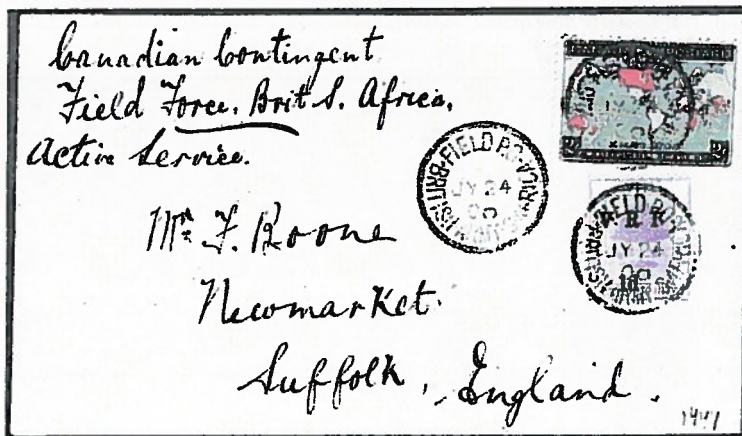 Canadian Contingent
Field Force, Brit S. Africa.
Active Service.
Mr. F. Roone
Newmarket.
Suffolk, England.
FIELD P.O. BRITISH ARMY S. AFRICA
JY 24
00
FIELD P.O. BRITISH ARMY S. AFRICA
JY 24
00